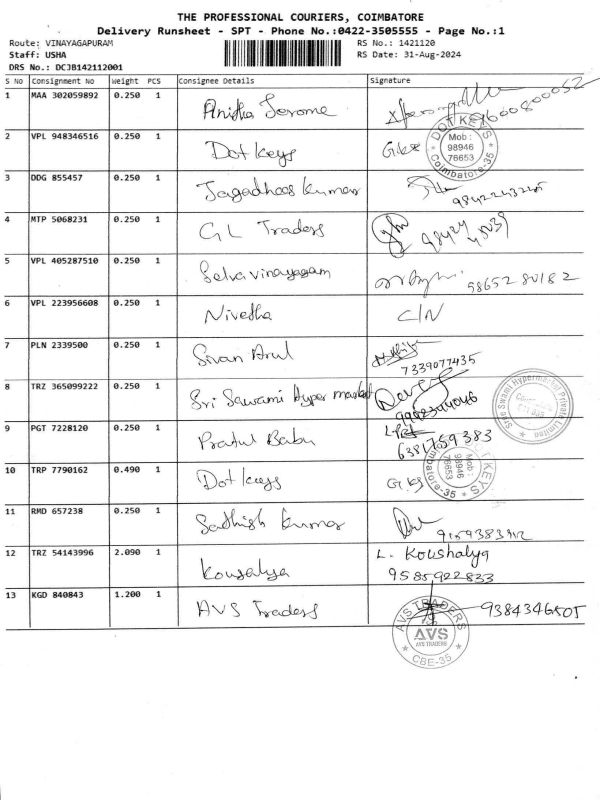 THE PROFESSIONAL COURIERS, COIMBATORE
Delivery Runsheet - SPT - Phone No.:0422-3505555 - Page No.:1
Route: VINAYAGAPURAM RS No.: 1421120
Staff: USHA RS Date: 31-Aug-2024
DRS No.: DCJB142112001
S No Consignment No Weight PCS Consignee Details Signature
1 MAA 302059892 0.250 1 Anitha Jerome 9600800052
2 VPL 948346516 0.250 1 Dot Keys G.k
DOT KEYS Mob : 98946 76653 Coimbatore-35
3 DDG 855457 0.250 1 Jagadhees Kumar
4 MTP 5068231 0.250 1 GL Traders 98424 48039
5 VPL 405287510 0.250 1 Selvavinayagam 98652 80182
6 VPL 223956608 0.250 1 Nivetha C/N
7 PLN 2339500 0.250 1 Sivan Arul 7339077435
8 TRZ 365099222 0.250 1 Sri Sawami Hyper market
Sree Swami Hypermarket Private Limited
9 PGT 7228120 0.250 1 Pratul Babu 6381759383
10 TRP 7790162 0.490 1 Dot Keys G.k
DOT KEYS Mob : 98946 76653 Coimbatore-35
11 RMD 657238 0.250 1 Sathish Kumar
12 TRZ 54143996 2.090 1 Kousalya L. Koushalya
9585922833
13 KGD 840843 1.200 1 AVS Traders 9384346505
AVS TRADERS AVS AVS TRADERS CBE-35